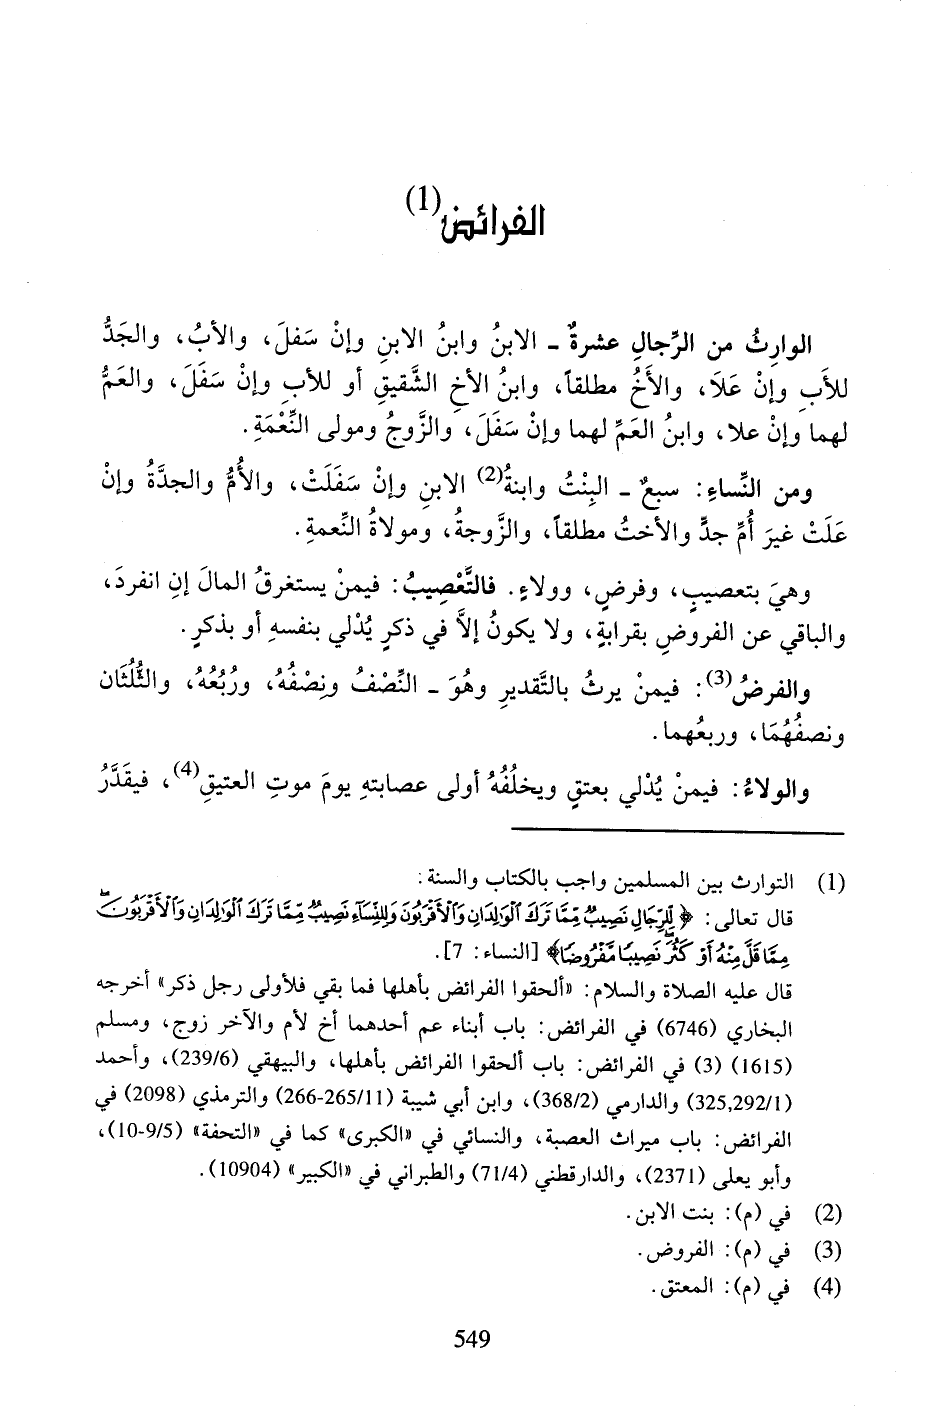 الفرائض(1)
الوارِثُ من الرِّجالِ عشرةٌ ـ الابنُ وابنُ الابنِ وإنْ سَفلَ، والأبُ، والجَدُّ
للأَبِ وإنْ عَلَا، والأَخُ مطلقاً، وابنُ الأخِ الشَّقيقِ أو للأبِ وإنْ سَفَلَ، والعَمُّ
لهما وإنْ علا، وابنُ العَمِّ لهما وإنْ سَفَلَ، والزَّوجُ ومولى النِّعْمَةِ.
ومن النِّساءِ: سبعٌ ـ البِنْتُ وابنةُ(2) الابنِ وإنْ سَفَلَتْ، والأُمُّ والجدَّةُ وإنْ
عَلَتْ غيرَ أُمِّ جدٍّ والأختُ مطلقاً، والزَّوجةُ، ومولاةُ النِّعمةِ.
وهيَ بتعصيبٍ، وفرضٍ، وولاءٍ. فالتَّعْصِيبُ: فيمنْ يستغرقُ المالَ إنِ انفردَ،
والباقي عن الفروضِ بقرابةٍ، ولا يكونُ إلاَّ في ذكرٍ يُدْلي بنفسهِ أو بذكرٍ.
والفرضُ(3): فيمنْ يرثُ بالتَّقديرِ وهُوَ ـ النِّصْفُ ونِصْفُهُ، ورُبُعُهُ، والثُّلُثَان
ونصفُهُمَا، وربعُهما.
والولاءُ: فيمنْ يُدْلي بعتقٍ ويخلُفُهُ أولى عصابتهِ يومَ موتِ العتيقِ(4)، فيقَدَّرُ
(1) التوارث بين المسلمين واجب بالكتاب والسنة:
قال تعالى: ﴿لِّلرِّجَالِ نَصِيبٌ مِّمَّا تَرَكَ ٱلْوَٰلِدَانِ وَٱلْأَقْرَبُونَ وَلِلنِّسَآءِ نَصِيبٌ مِّمَّا تَرَكَ ٱلْوَٰلِدَانِ وَٱلْأَقْرَبُونَ
مِمَّا قَلَّ مِنْهُ أَوْ كَثُرَ نَصِيبًا مَّفْرُوضًا﴾ [النساء: 7].
قال عليه الصلاة والسلام: «ألحقوا الفرائض بأهلها فما بقي فلأولى رجل ذكر» أخرجه
البخاري (6746) في الفرائض: باب أبناء عم أحدهما أخ لأم والآخر زوج، ومسلم
(1615) (3) في الفرائض: باب ألحقوا الفرائض بأهلها، والبيهقي (239/6)، وأحمد
(325,292/1) والدارمي (368/2)، وابن أبي شيبة (265/11-266) والترمذي (2098) في
الفرائض: باب ميراث العصبة، والنسائي في «الكبرى» كما في «التحفة» (9/5-10)،
وأبو يعلى (2371)، والدارقطني (71/4) والطبراني في «الكبير» (10904).
(2) في (م): بنت الابن.
(3) في (م): الفروض.
(4) في (م): المعتق.
549